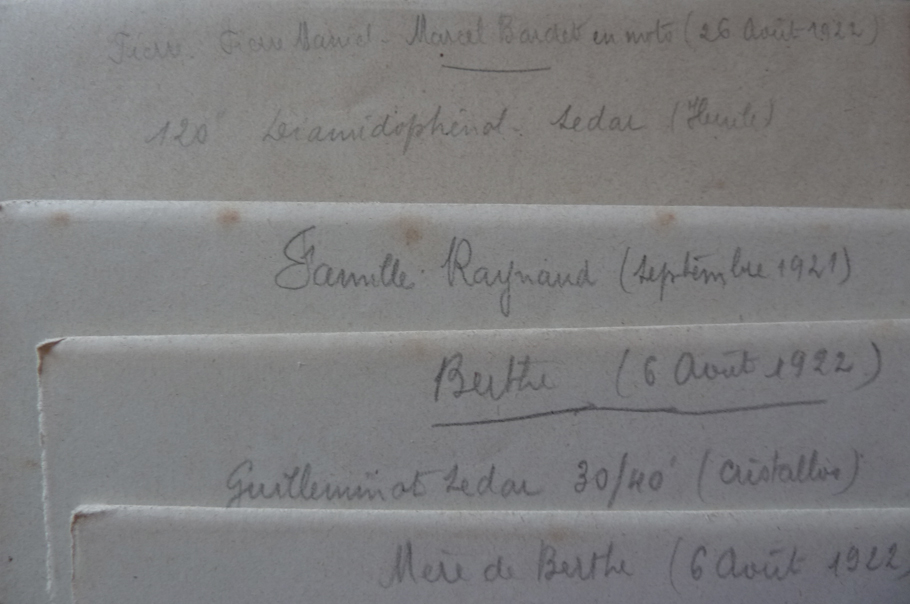 Marcel Bardet en moto (26 Août 1922)
120" Diamidophénol. Sedar (Huile)
Famille Raynaud (Septembre 1921)
Berthe (6 Août 1922)
Guilleminot Sedar 30/40' (Cristallos)
Mère de Berthe (6 Août 1922